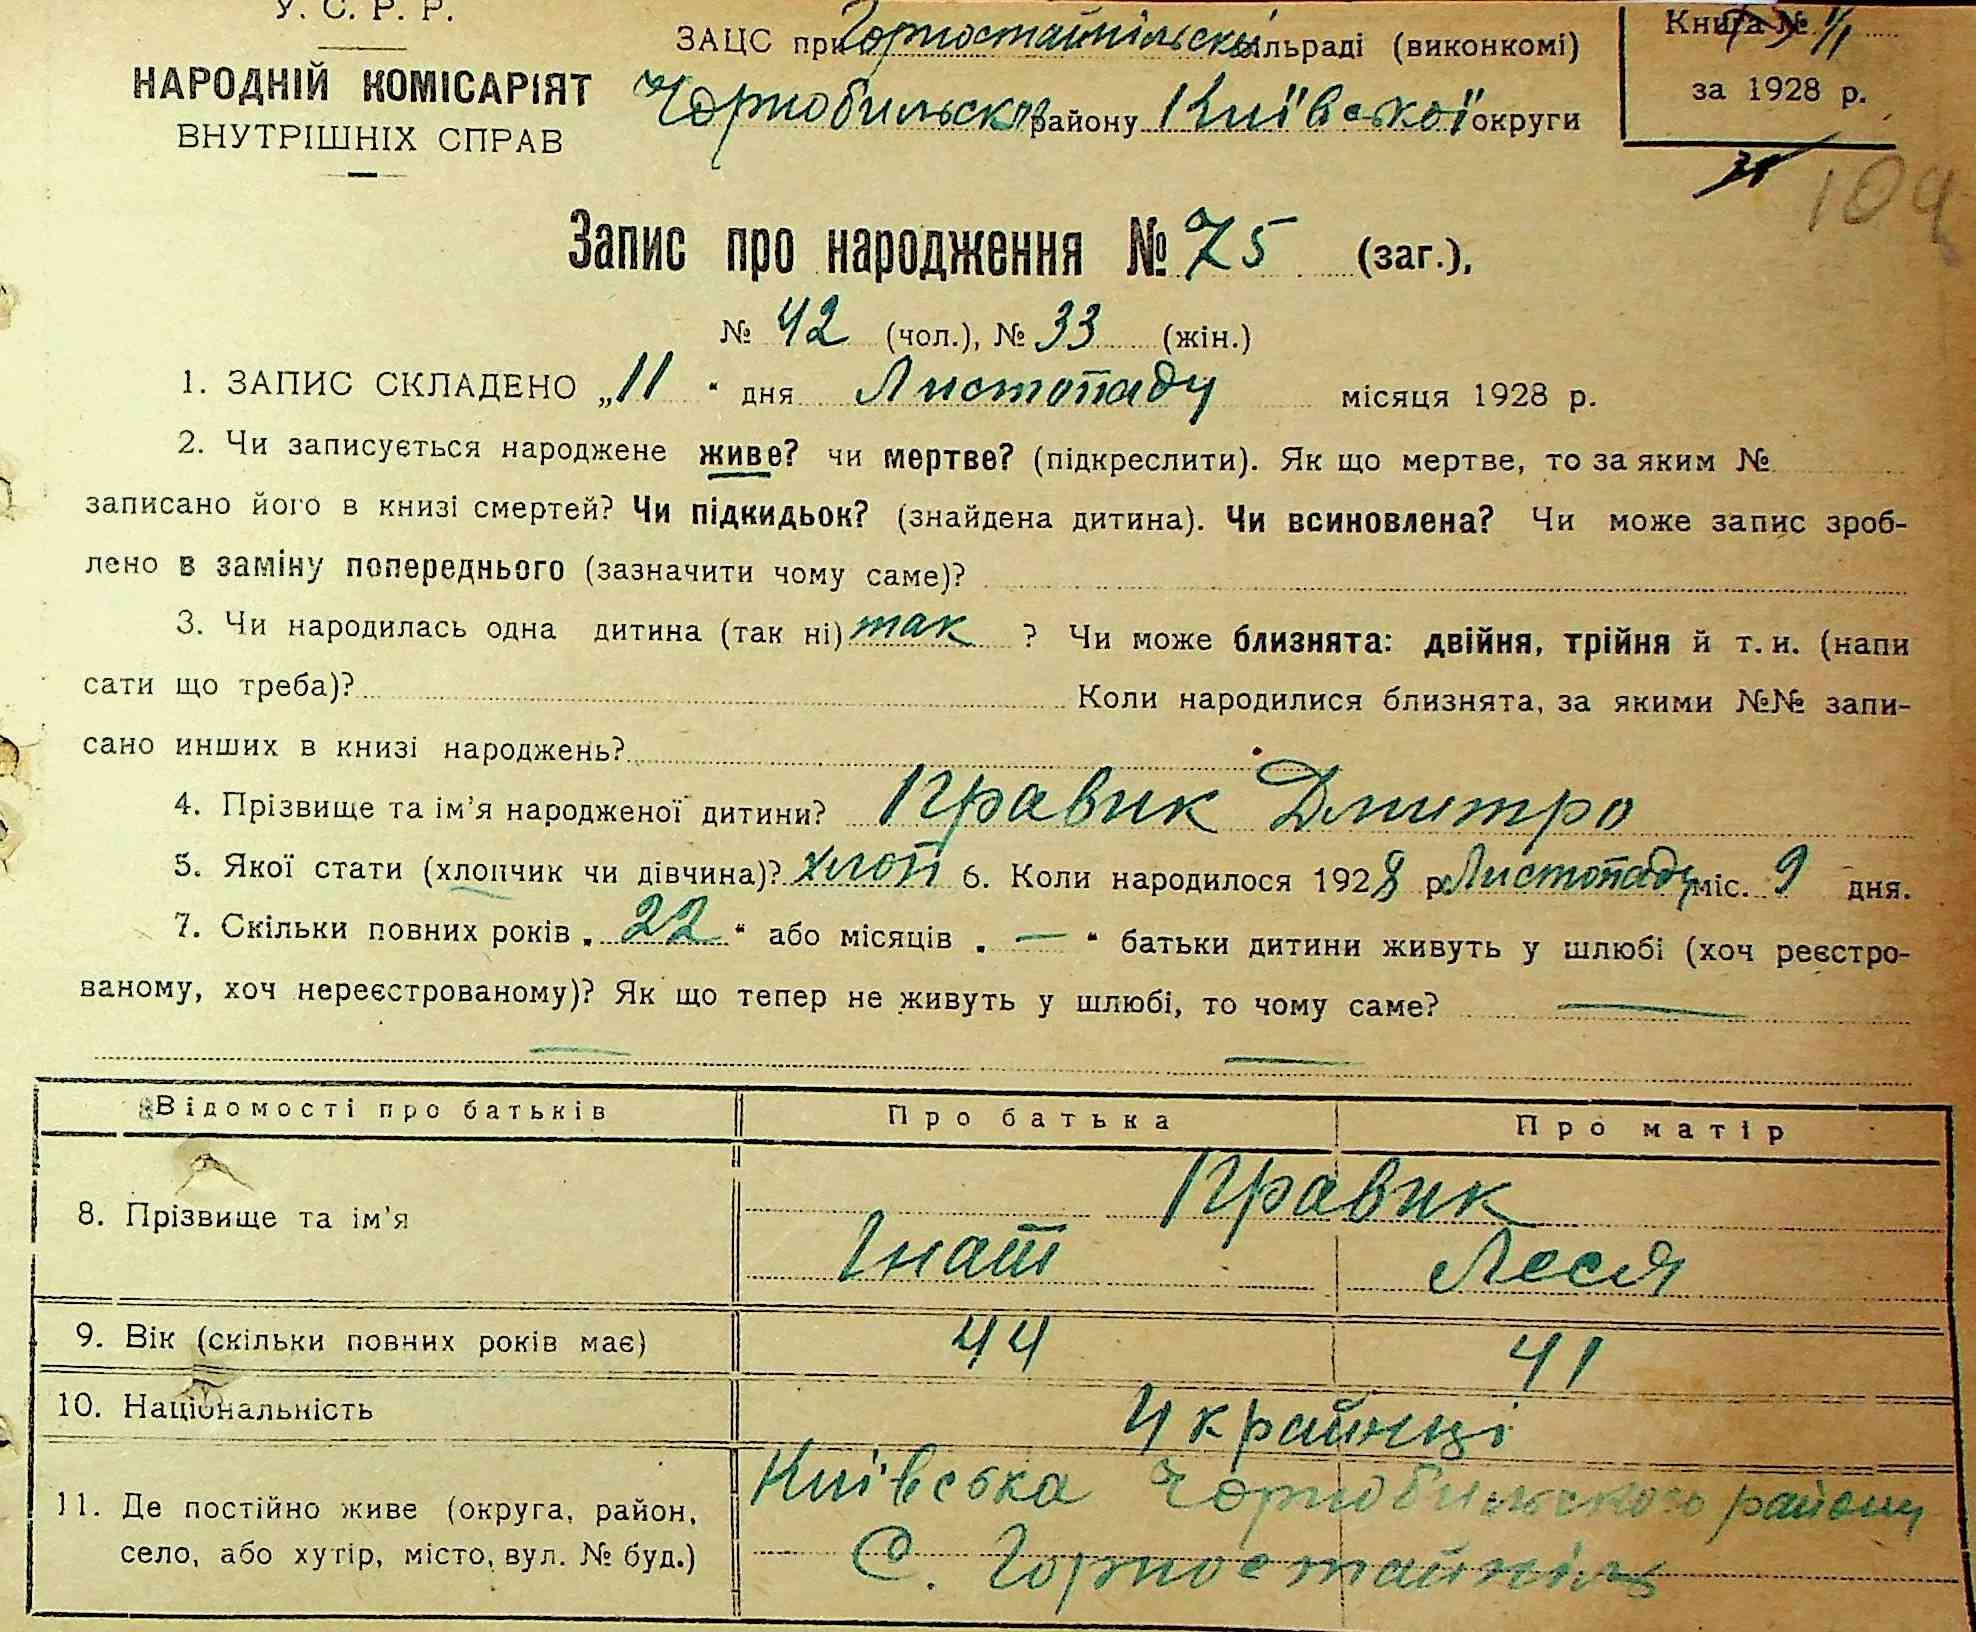 У. С. Р. Р.
НАРОДНІЙ КОМІСАРІЯТ
ВНУТРІШНІХ СПРАВ
ЗАЦС при Горностайпільскі сільраді (виконкомі)
Чорнобильськ району Київської округи
Книга № 1/1
за 1928 р.
104
Запис про народження № 75 (заг.),
№ 42 (чол.), № 33 (жін.)
1. ЗАПИС СКЛАДЕНО „11" дня Листопаду місяця 1928 р.
2. Чи записується народжене живе? чи мертве? (підкреслити). Як що мертве, то за яким №
записано його в книзі смертей? Чи підкидьок? (знайдена дитина). Чи всиновлена? Чи може запис зроб-
лено в заміну попереднього (зазначити чому саме)?
3. Чи народилась одна дитина (так ні) так ? Чи може близнята: двійня, трійня й т. и. (напи
сати що треба)? Коли народилися близнята, за якими №№ запи-
сано инших в книзі народжень?
4. Прізвище та ім'я народженої дитини? Кравик Дмитро
5. Якої стати (хлопчик чи дівчина)? хлоп 6. Коли народилося 1928 р Листопаду міс. 9 дня.
7. Скільки повних років „ 22 " або місяців „ — " батьки дитини живуть у шлюбі (хоч реєстро-
ваному, хоч нереєстрованому)? Як що тепер не живуть у шлюбі, то чому саме? —
— —
Відомості про батьків Про батька Про матір
8. Прізвище та ім'я Кравик
Гнат Леся
9. Вік (скільки повних років має) 44 41
10. Національність Украйнці
11. Де постійно живе (округа, район, Київська Чорнобильского району
село, або хутір, місто, вул. № буд.) С. Горностайпіль